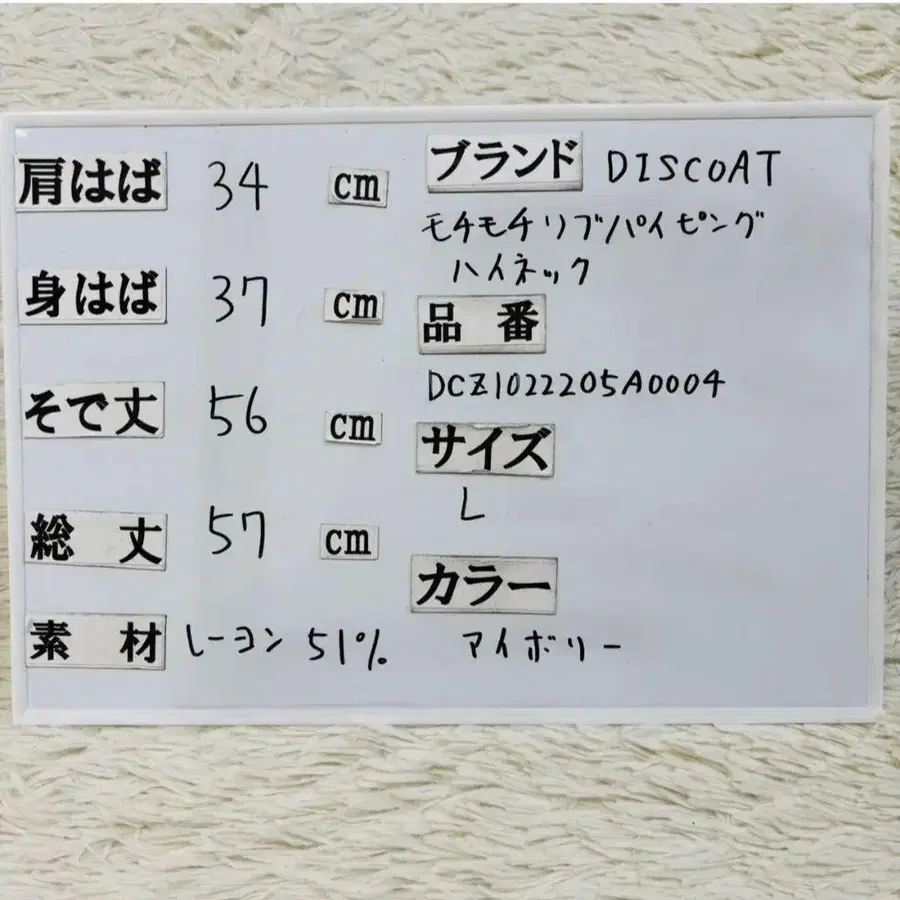 肩はば 34 cm
身はば 37 cm
そで丈 56 cm
総丈 57 cm
素材 レーヨン 51%
ブランド DISCOAT
モチモチリブパイピング
ハイネック
品番
DCZ1022205A0004
サイズ
L
カラー
アイボリー